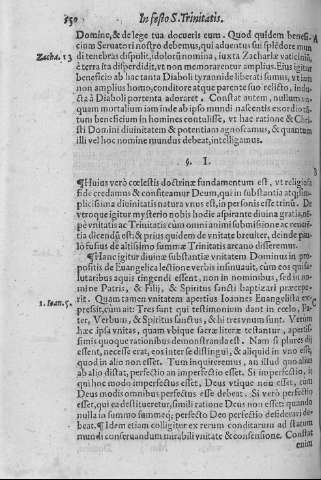 150 In festo S. Trinitatis.
Domine, & de lege tua docueris eum. Quod quidem benefi- A
cium Seruatori nostro debemus, qui aduentus sui splēdore mun
Zacha. 13 di tenebras dispulit, idolorū nomina, iuxta Zachariæ vaticiniū,
è terra ita disperdidit, vt non memorarentur amplius. Eius igitur
beneficio ab hac tanta Diaboli tyrannide liberati sumus, vt iam
non amplius homo, conditore atque parente suo relicto, indu-
cta à Diaboli portenta adoraret. Constat autem, nullum vn-
quam mortalium iam inde ab ipso mundi nascentis exordio tā-
tum beneficium in homines contulisse, vt hac ratione & Chri-
sti Domini diuinitatem & potentiam agnoscamus, & quantum
illi vel hoc nomine mundus debeat, intelligamus.
§. I.
B
¶ Huius verò cœlestis doctrinæ fundamentum est, vt religiosa
fide credamus & confiteamur Deum, qui in substantia atq; sim-
plicissima diuinitatis natura vnus est, in personis esse trinū. De
vtroque igitur mysterio nobis hodie aspirante diuina gratia, ni-
pè vnitate ac Trinitate cum omni animi submissione ac reueren
tia dicendū est: & prius quidem de vnitate breuiter, deinde pau
lò fusius de altissimo summæ Trinitatis arcano disseremus.
¶ Hanc igitur diuinæ substantiæ vnitatem Dominus in pro-
positis de Euangelica lectione verbis insinuauit, cùm eos qui sa-
lutaribus aquis tingendi essent, non in nominibus, sed in no-
mine Patris, & Filij, & Spiritus sancti baptizari præcepe-
1. Ioan. 5. rit. Quam tamen vnitatem apertius Ioannes Euangelista ex- C
pressit, cùm ait: Tres sunt qui testimonium dant in cœlo, Pa-
ter, Verbum, & Spiritus sanctus, & hi tres vnum sunt. Verùm
hæc ipsa vnitas, quam vbique sacræ literæ testantur, apertis-
simis quoque rationibus demonstranda est. Nam si plures dij
essent, necesse erat, eos inter se distingui, & aliquid in vno esse,
quod in alio non esset. Tum inquiremus, an illud quo alius
ab alio distat, perfectio an imperfectio esset. Si imperfectio, is
qui hoc modo imperfectus esset, Deus vtique non esset, cùm
Deus modis omnibus perfectus esse debeat. Si verò perfectio
esset, qui ea destitueretur, simili ratione Deus non esset: quando
nulla in summo summeq; perfecto Deo perfectio desiderari de-
beat. ¶ Idem etiam colligitur ex rerum conditarum ad statum
mundi conseruandum mirabili vnitate & consensione. Constat
enim